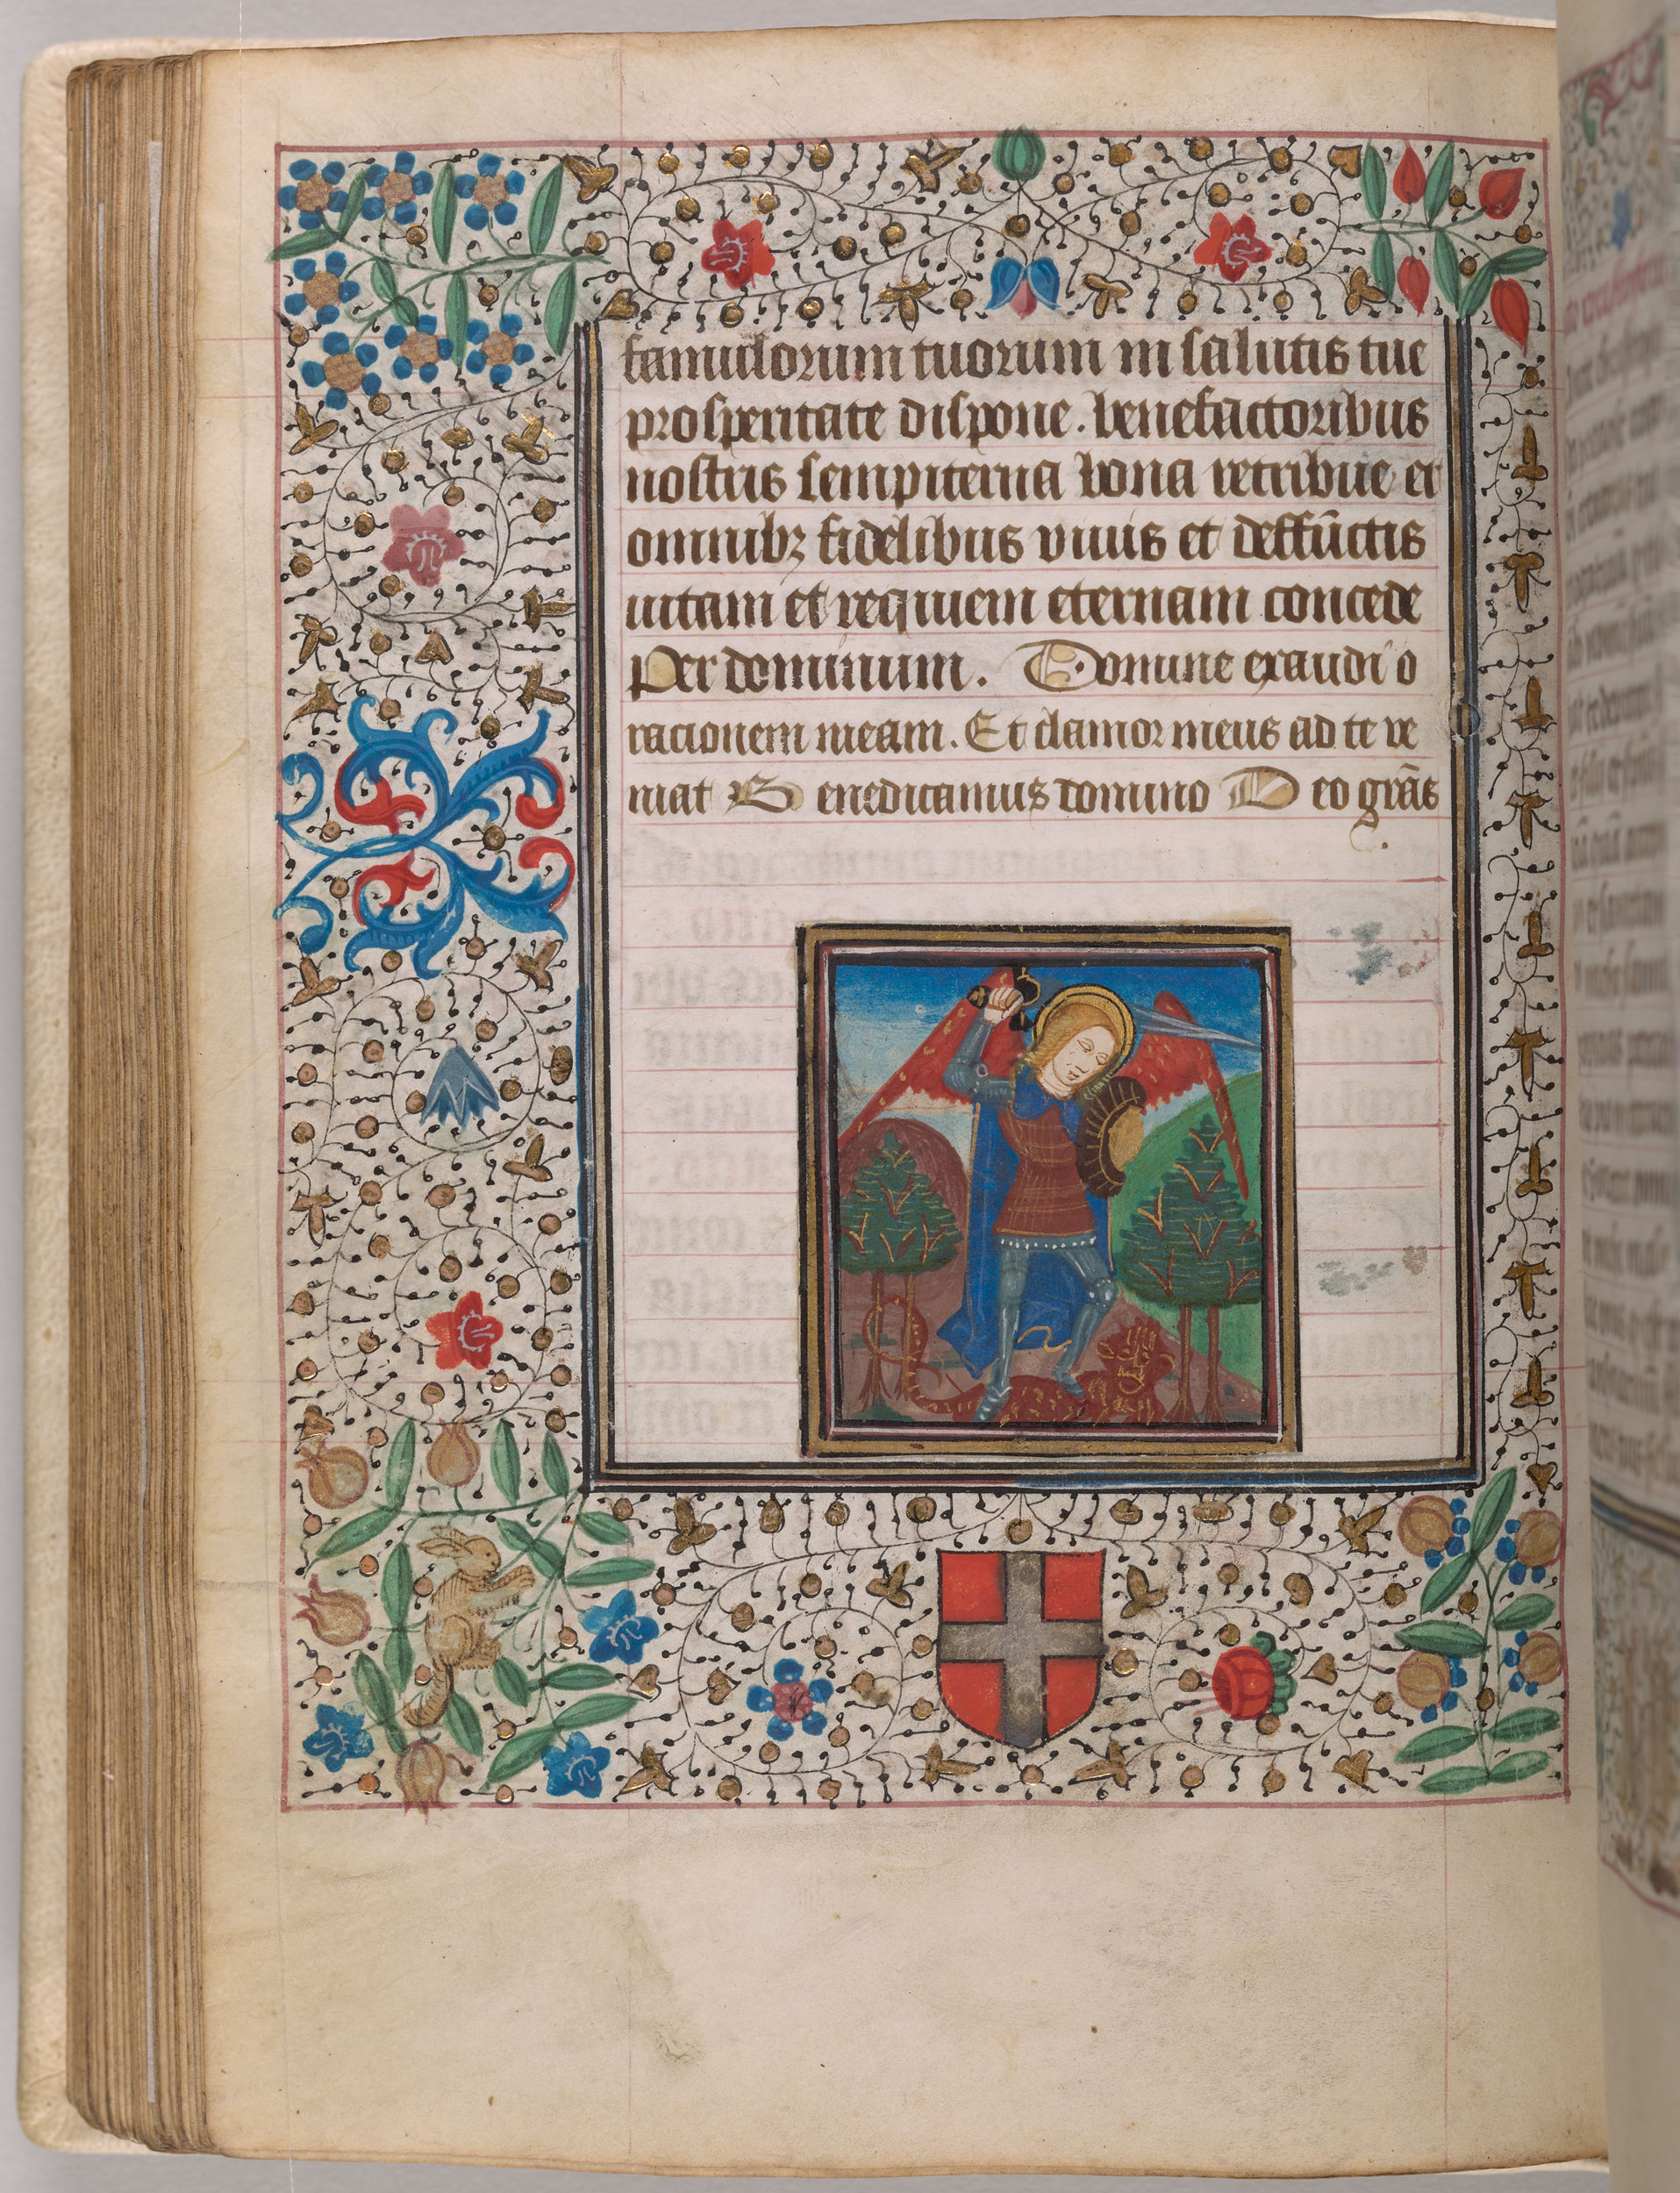 famulorum tuorum in salutis tue
prosperitate dispone. benefactoribus
nostris sempiterna bona retribue et
omnibꝫ fidelibus viuis et deffūctis
uitam et requiem eternam concede
Per dominum. Domine exaudi o
racionem meam. Et clamor meus ad te ve
niat Benedicamus domino Deo grās
.